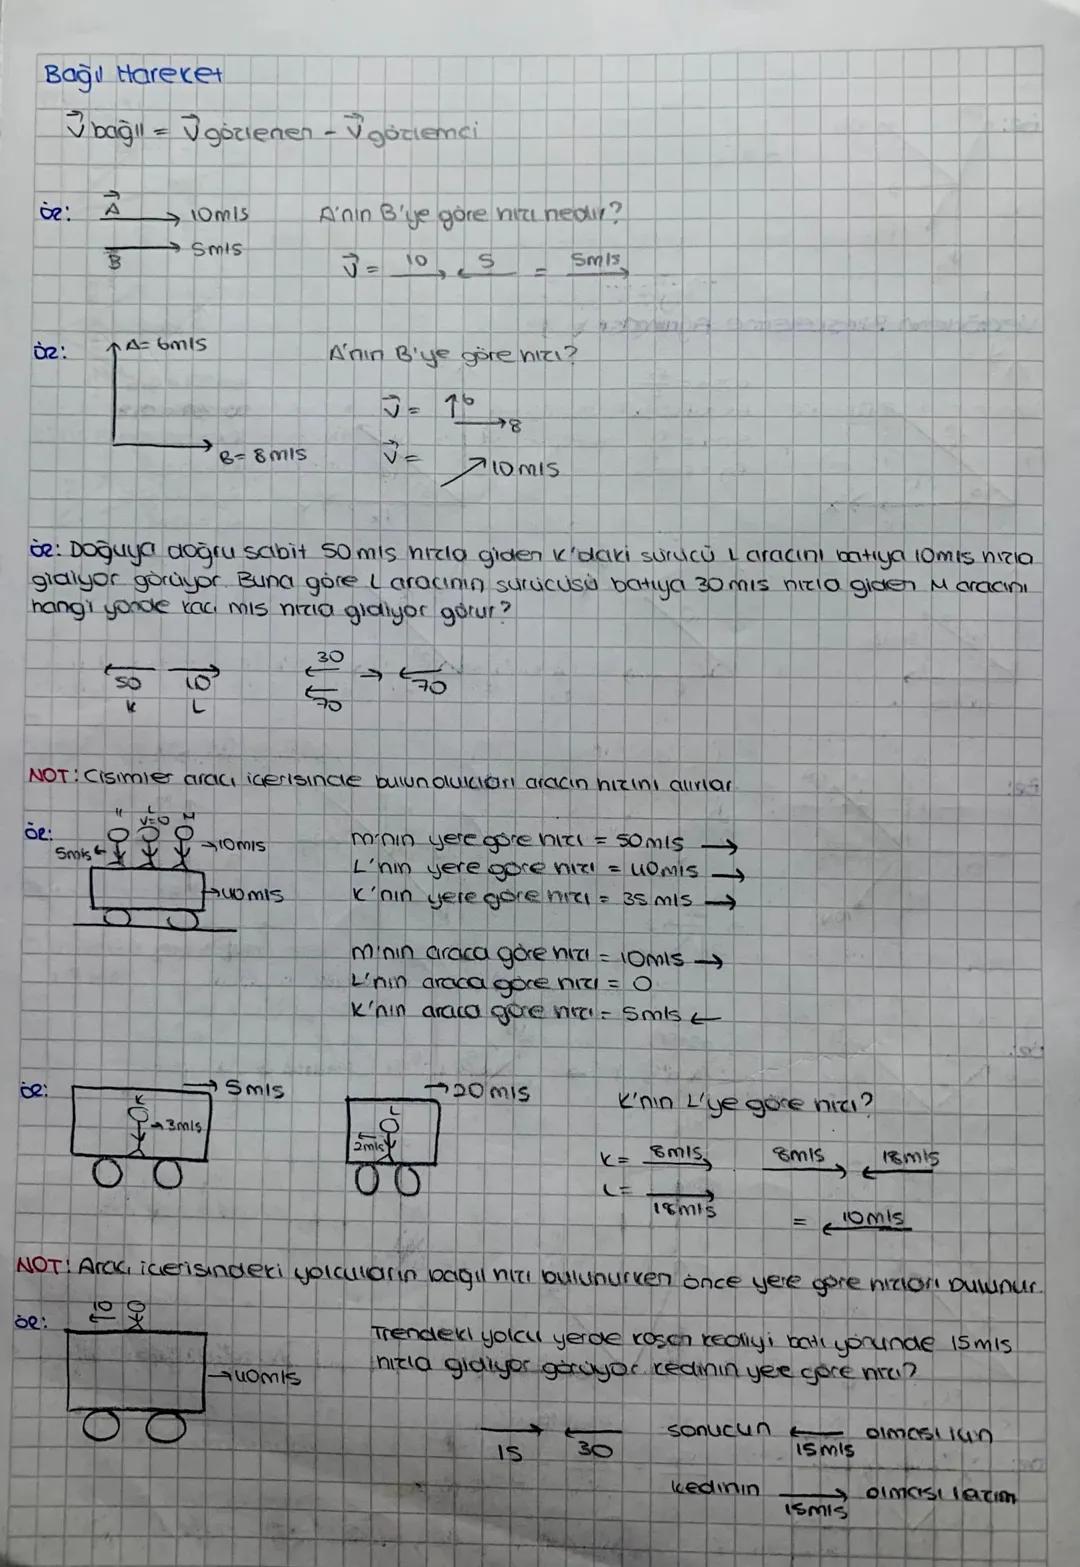 Bağıl Hareket
V bağıl = V gözlenen - V gözlemci
ör: A 10m/s A'nın B'ye göre hızı nedir?
B 5m/s
V = 10 5 = 5m/s
ör: A= 6m/s A'nın B'ye göre hızı?
V = 6 8
B= 8m/s V = 10m/s
ör: Doğuya doğru sabit 50m/s hızla giden K'daki sürücü L aracını batıya 10m/s hızla
gidiyor görüyor. Buna göre L aracının sürücüsü batıya 30m/s hızla giden M aracını
hangi yönde kaç m/s hızla gidiyor görür?
50 10 30 70 70
K L
NOT: Cisimler araç içerisinde bulundukları aracın hızını alırlar.
ör: K L V=0 M
5m/s 10m/s M'nin yere göre hızı = 50m/s →
L'nin yere göre hızı = 40m/s →
40m/s K'nın yere göre hızı = 35m/s →
M'nin araca göre hızı = 10m/s →
L'nin araca göre hızı = 0
K'nın araca göre hızı = 5m/s ←
ör: → 5m/s → 20m/s K'nın L'ye göre hızı?
K → 3m/s L 2m/s
K = 8m/s 8m/s 18m/s
L = 18m/s
= 10m/s
NOT! Araç içerisindeki yolcuların bağıl hızı bulunurken önce yere göre hızları bulunur.
ör: 10
Trendeki yolcu yerde koşan kediyi batı yönünde 15m/s
→ 40m/s hızla gidiyor görüyor. kedinin yee göre hızı?
15 30 sonucun 15m/s olması için
kedinin 15m/s olması lazım